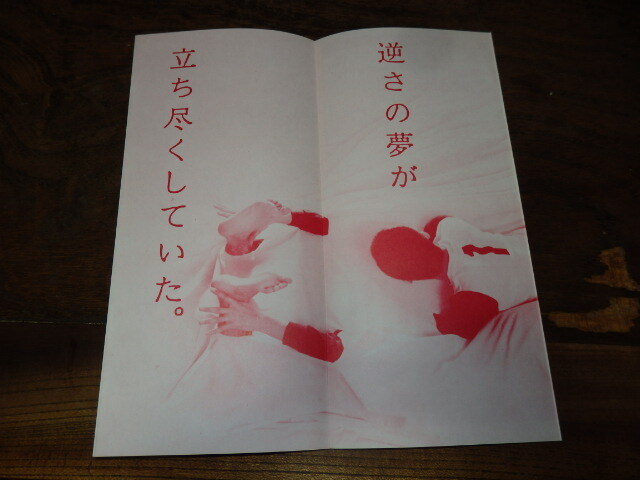 逆さの夢が
立ち尽くしていた。